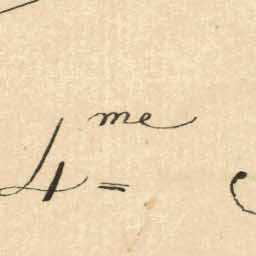 4me =